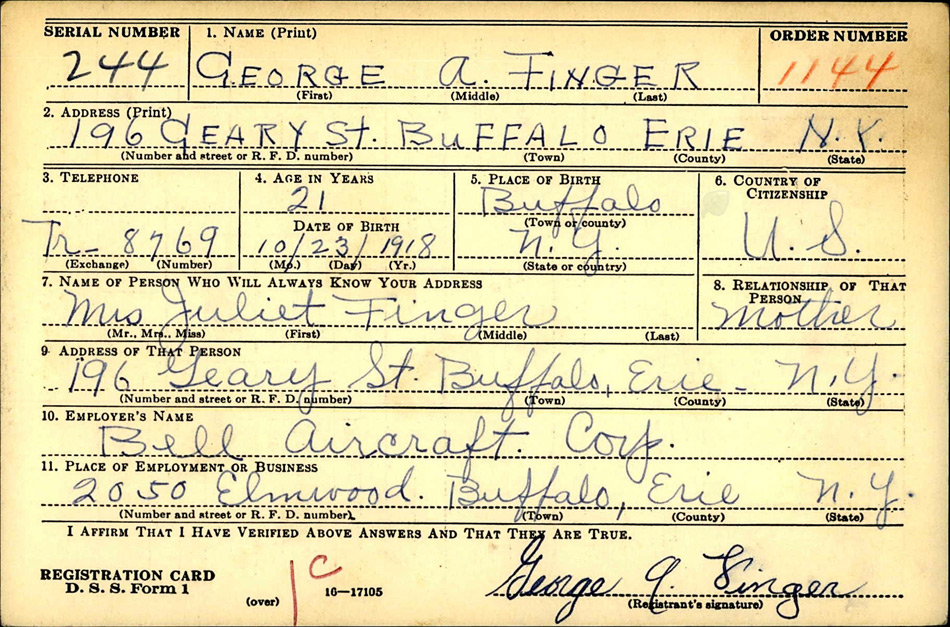 SERIAL NUMBER 1. NAME (Print) ORDER NUMBER
244 GEORGE A. FINGER 1144
(First) (Middle) (Last)
2. ADDRESS (Print)
196 GEARY St. BUFFALO ERIE N.Y.
(Number and street or R. F. D. number) (Town) (County) (State)
3. TELEPHONE 4. AGE IN YEARS 5. PLACE OF BIRTH 6. COUNTRY OF CITIZENSHIP
21 Buffalo
DATE OF BIRTH (Town or county)
Tr- 8769 10/23/1918 N.Y. U.S.
(Exchange) (Number) (Mo.) (Day) (Yr.) (State or country)
7. NAME OF PERSON WHO WILL ALWAYS KNOW YOUR ADDRESS 8. RELATIONSHIP OF THAT PERSON
Mrs Juliet Finger Mother
(Mr., Mrs., Miss) (First) (Middle) (Last)
9. ADDRESS OF THAT PERSON
196 Geary St. Buffalo, Erie - N.Y.
(Number and street or R. F. D. number) (Town) (County) (State)
10. EMPLOYER'S NAME
Bell Aircraft. Corp.
11. PLACE OF EMPLOYMENT OR BUSINESS
2050 Elmwood. Buffalo, Erie N.Y.
(Number and street or R. F. D. number) (Town) (County) (State)
I AFFIRM THAT I HAVE VERIFIED ABOVE ANSWERS AND THAT THEY ARE TRUE.
REGISTRATION CARD
D. S. S. Form 1 1C George A. Finger
(over) 16—17105 (Registrant's signature)